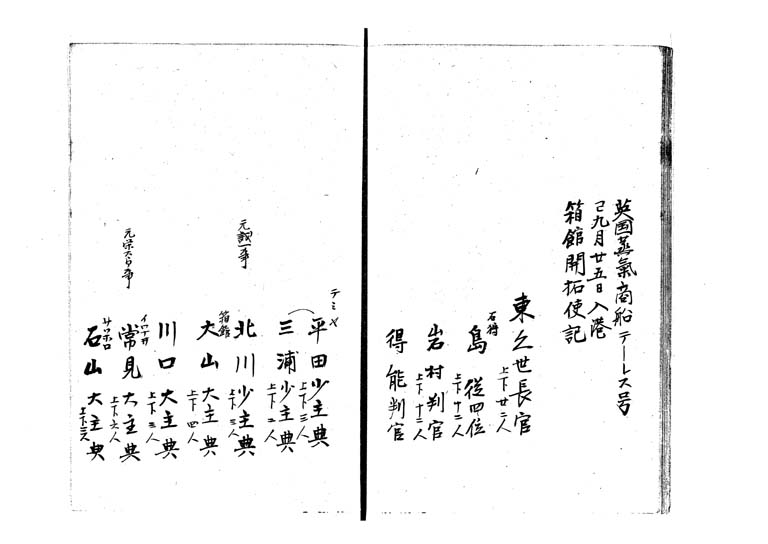 英国蒸氣商船テールス号
己九月廿五日入港
箱館開拓使記
東久世長官
上下廿二人
石狩
島従四位
上下十二人
岩村判官
上下十二人
得能判官
テミヤ
平田少主典
上下三人
三浦少主典
上下二人
元誠一事
北川少主典
上下三人
箱館
大山大主典
上下四人
川口大主典
上下三人
常見大主典
上下六人
サツホロ
石山大主典